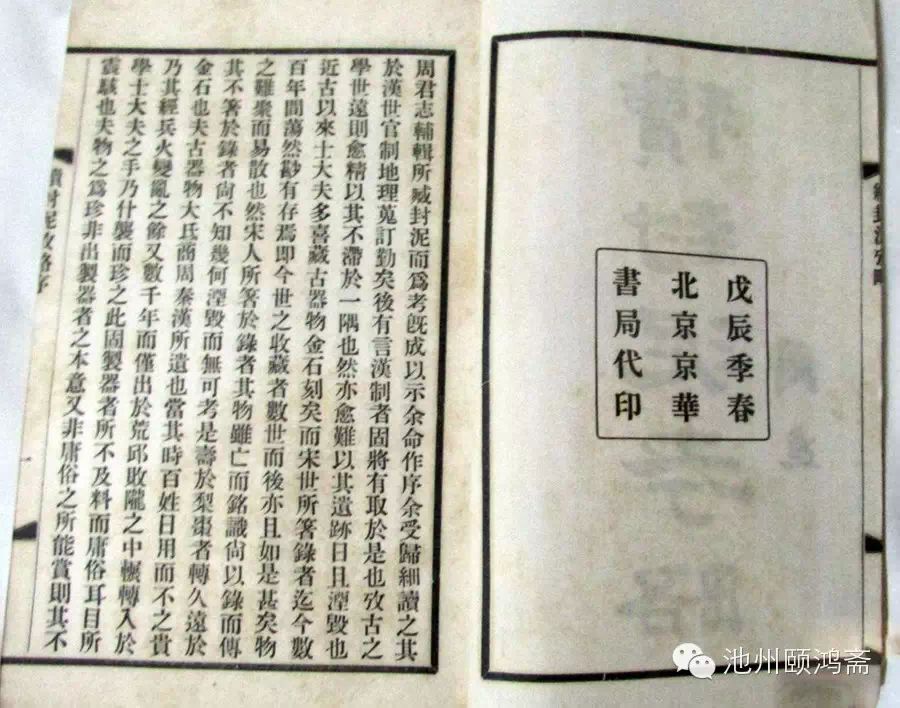 戊辰季春
北京京華
書局代印
周君志輔輯所臧封泥而爲考旣成以示余命作序余受歸細讀之其
於漢世官制地理蒐訂勤矣後有言漢制者固將有取於是也攷古之
學世遠則愈精以其不滯於一隅也然亦愈難以其遺跡日且湮毀也
近古以來士大夫多喜藏古器物金石刻矣而宋世所箸錄者迄今數
百年間蕩然尠有存焉即今世之收藏者數世而後亦且如是甚矣物
之難聚而易散也然宋人所箸於錄者其物雖亡而銘識尙以錄而傳
其不箸於錄者尙不知幾何湮毀而無可考是壽於梨棗者轉久遠於
金石也夫古器物大氐商周秦漢所遺也當其時百姓日用而不之貴
乃其經兵火變亂之餘又數千年而僅出於荒邱敗隴之中輾轉入於
學士大夫之手乃什襲而珍之此固製器者所不及料而庸俗耳目所
震駭也夫物之爲珍非出製器者之本意又非庸俗之所能賞則其不
續封泥攷略序
續封泥攷略
池州颐鸿斋